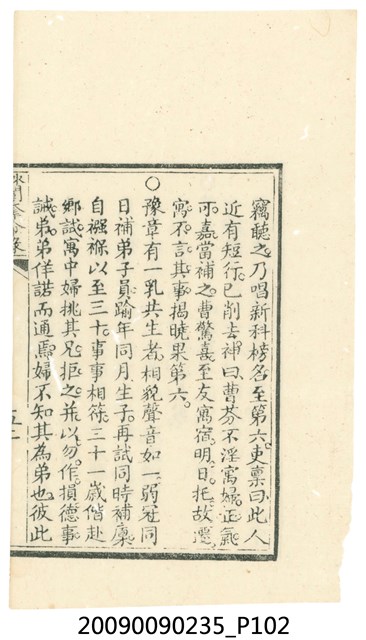 竊聽之乃唱新科榜名至第六吏稟曰此人
近有短行已削去神曰曹芬不淫寓婦正氣
可嘉當補之曹驚喜至友寓宿明日托故遷
寓不言其事揭曉果第六
○
豫章有一乳共生者相貌聲音如一弱冠同
日補弟子員踰年同月生子再試同時補廩
自襁褓以至三十事事相符三十一歲偕赴
鄉試寓中婦挑其兄拒之并以勿作損德事
誡弟弟佯諾而通焉婦不知其為弟也彼此
20090090235_P102